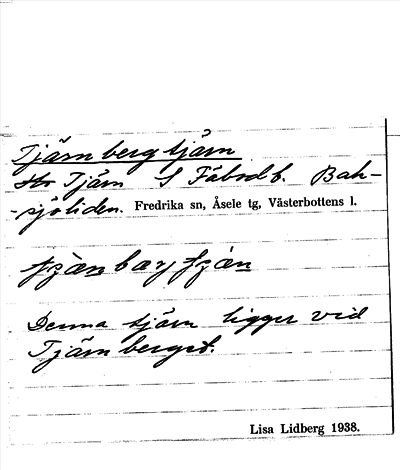 Tjärnbergtjärn
Tjärn S Fäbodb. Bak-
-sjöliden. Fredrika sn, Åsele tg, Västerbottens l.
Denna tjärn ligger vid
Tjärnberget.
Lisa Lidberg 1938.